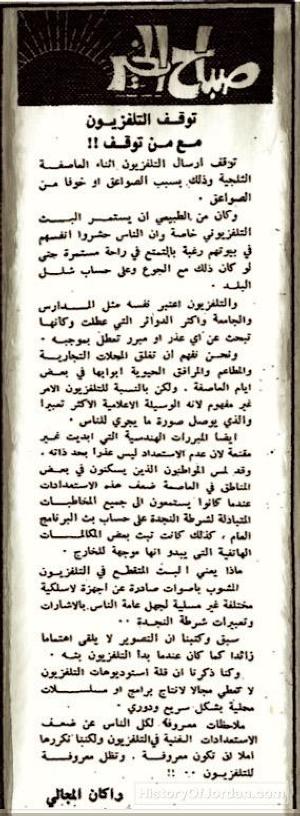 صباح الخير
توقف التلفزيون
مع من توقف !!
توقف ارسال التلفزيون اثناء العاصفة
الثلجية وذلك بسبب الصواعق او خوفا من
الصواعق .
وكان من الطبيعي ان يستمر البث
التلفزيوني خاصة وان الناس حشروا انفسهم
في بيوتهم رغبة بالتمتع في راحة مستمرة حتى
لو كان ذلك مع الجوع وعلى حساب شلل
البلد .
والتلفزيون اعتبر نفسه مثل المدارس
والجامعة واكثر الدوائر التي عطلت وكأنها
تبحث عن اي عذر او مبرر تعطل بموجبه .
ونحن نفهم ان تغلق المحلات التجارية
والمطاعم والمرافق الحيوية ابوابها في بعض
ايام العاصفة . ولكن بالنسبة للتلفزيون الامر
غير مفهوم لانه الوسيلة الاعلامية الاكثر تعبيرا
والذي يوصل صورة ما يجري للناس .
ايضا المبررات الهندسية التي ابديت غير
مقنعة لان عدم الاستعداد ليس عذرا بحد ذاته .
وقد لمس المواطنون الذين يسكنون في بعض
المناطق في العاصمة ضعف هذه الاستعدادات
عندما كانوا يستمعون الى جميع المخاطبات
المتبادلة لشرطة النجدة على حساب بث البرنامج
العام ، كذلك كانت تبث بعض المكالمات
الهاتفية التي يبدو انها موجهة للخارج .
ماذا يعني البث المتقطع في التلفزيون
المشوب باصوات صادرة عن اجهزة لاسلكية
مختلفة غير مسلية لجهل عامة الناس بالاشارات
وتعبيرات شرطة النجدة ..
سبق وكتبنا ان التصوير لا يلقى اهتماما
زائدا كما كان عندما بدأ التلفزيون بثه .
وكنا ذكرنا ان قلة استوديوهات التلفزيون
لا تعطي مجالا لانتاج برامج او مسلسلات
محلية بشكل سريع ودوري .
ملاحظات معروفة لكل الناس عن ضعف
الاستعدادات الفنية في التلفزيون ولكننا نكررها
املا ان تكون معروفة . وتظل معروفة
للتلفزيون .. !!
راكان المجالي
HistoryOfJordan.com